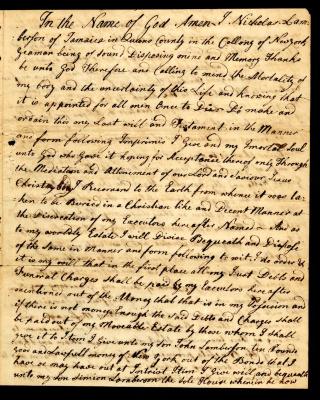 In the Name of God Amen I Nicholas Lam=
berson of Jamaica in Queens County in the Collony of New York
yeaman being of Sound Disposing mind and Memory Thanks
be unto God Therefore and Calling to mind the Mortality of
my body and the uncertainty of this Life and knowing that
it is appointed for all men Once to Die Do make and
ordain this my Last will and Testament in the Manner
and form following Imprimis I Give and my Imortal Soul
unto God who Gave it hoping for Acceptance thereof only Through
the Mediation and Attonement of our Lord and Saviour Jesus
Christ my body I Recomend to the Earth from whence it was ta=
ken to be Buried in a Christian like and Decent Manner at
the Discretion of my Executors here after Named And as
to my worldly Estate I will Devise Bequeath and Dispose
of the Same in Manner and form following to wit I do order &
it is my will that in the first place all my Just Debts and
Funeral Charges shall be paid by my Executors here after
mentioned out of the Money that is in my Possesion and
if there is not money Enough the said Debts and Charges shall
be paid out of my Moveable Estate by those whom I shall
give it to Item I Give unto my son John Lamberson ten Pounds
good and Lawfull money of New York out of the Bonds that I
have or may have out at Intrist Item I Give will and bequeath
unto my son Simeon Lamberson the House wherein he now